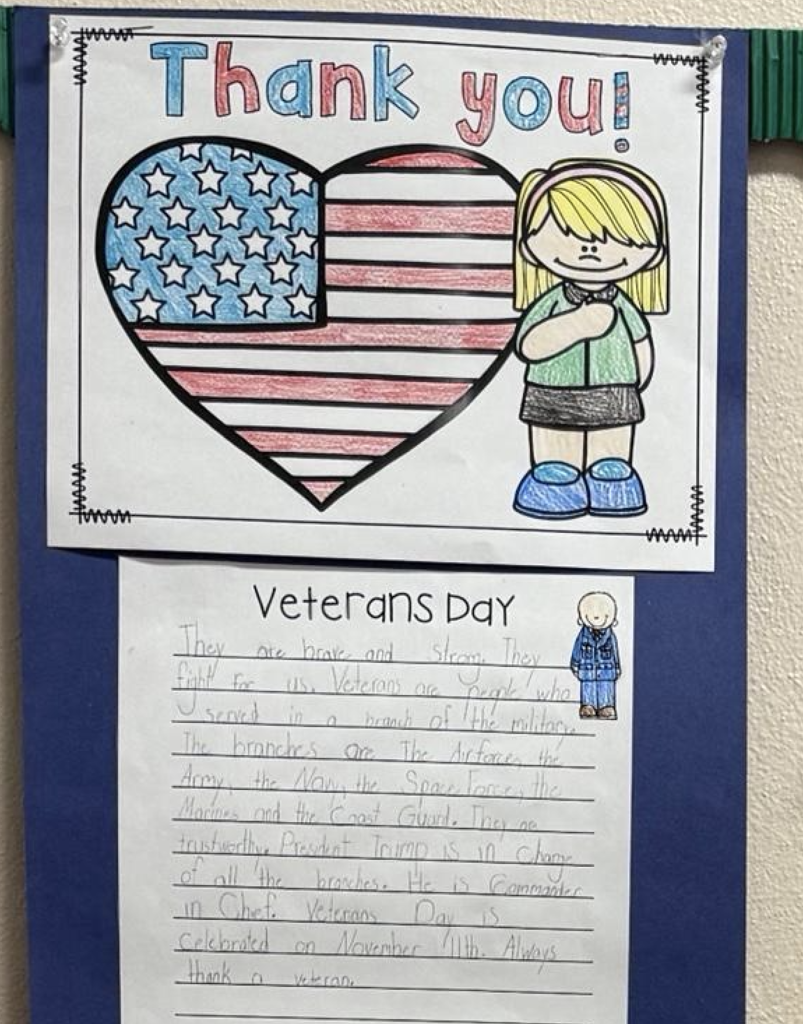 Thank you!
Veterans Day
They are brave and strong. They
fight for us. Veterans are people who
served in a branch of the military.
The branches are The Airforce, the
Army, the Navy, the Space Force, the
Marines and the Coast Guard. They are
trustworthy. President Trump is in charge
of all the branches. He is Commander
in Chief. Veterans Day is
celebrated on November 11th. Always
thank a veteran.